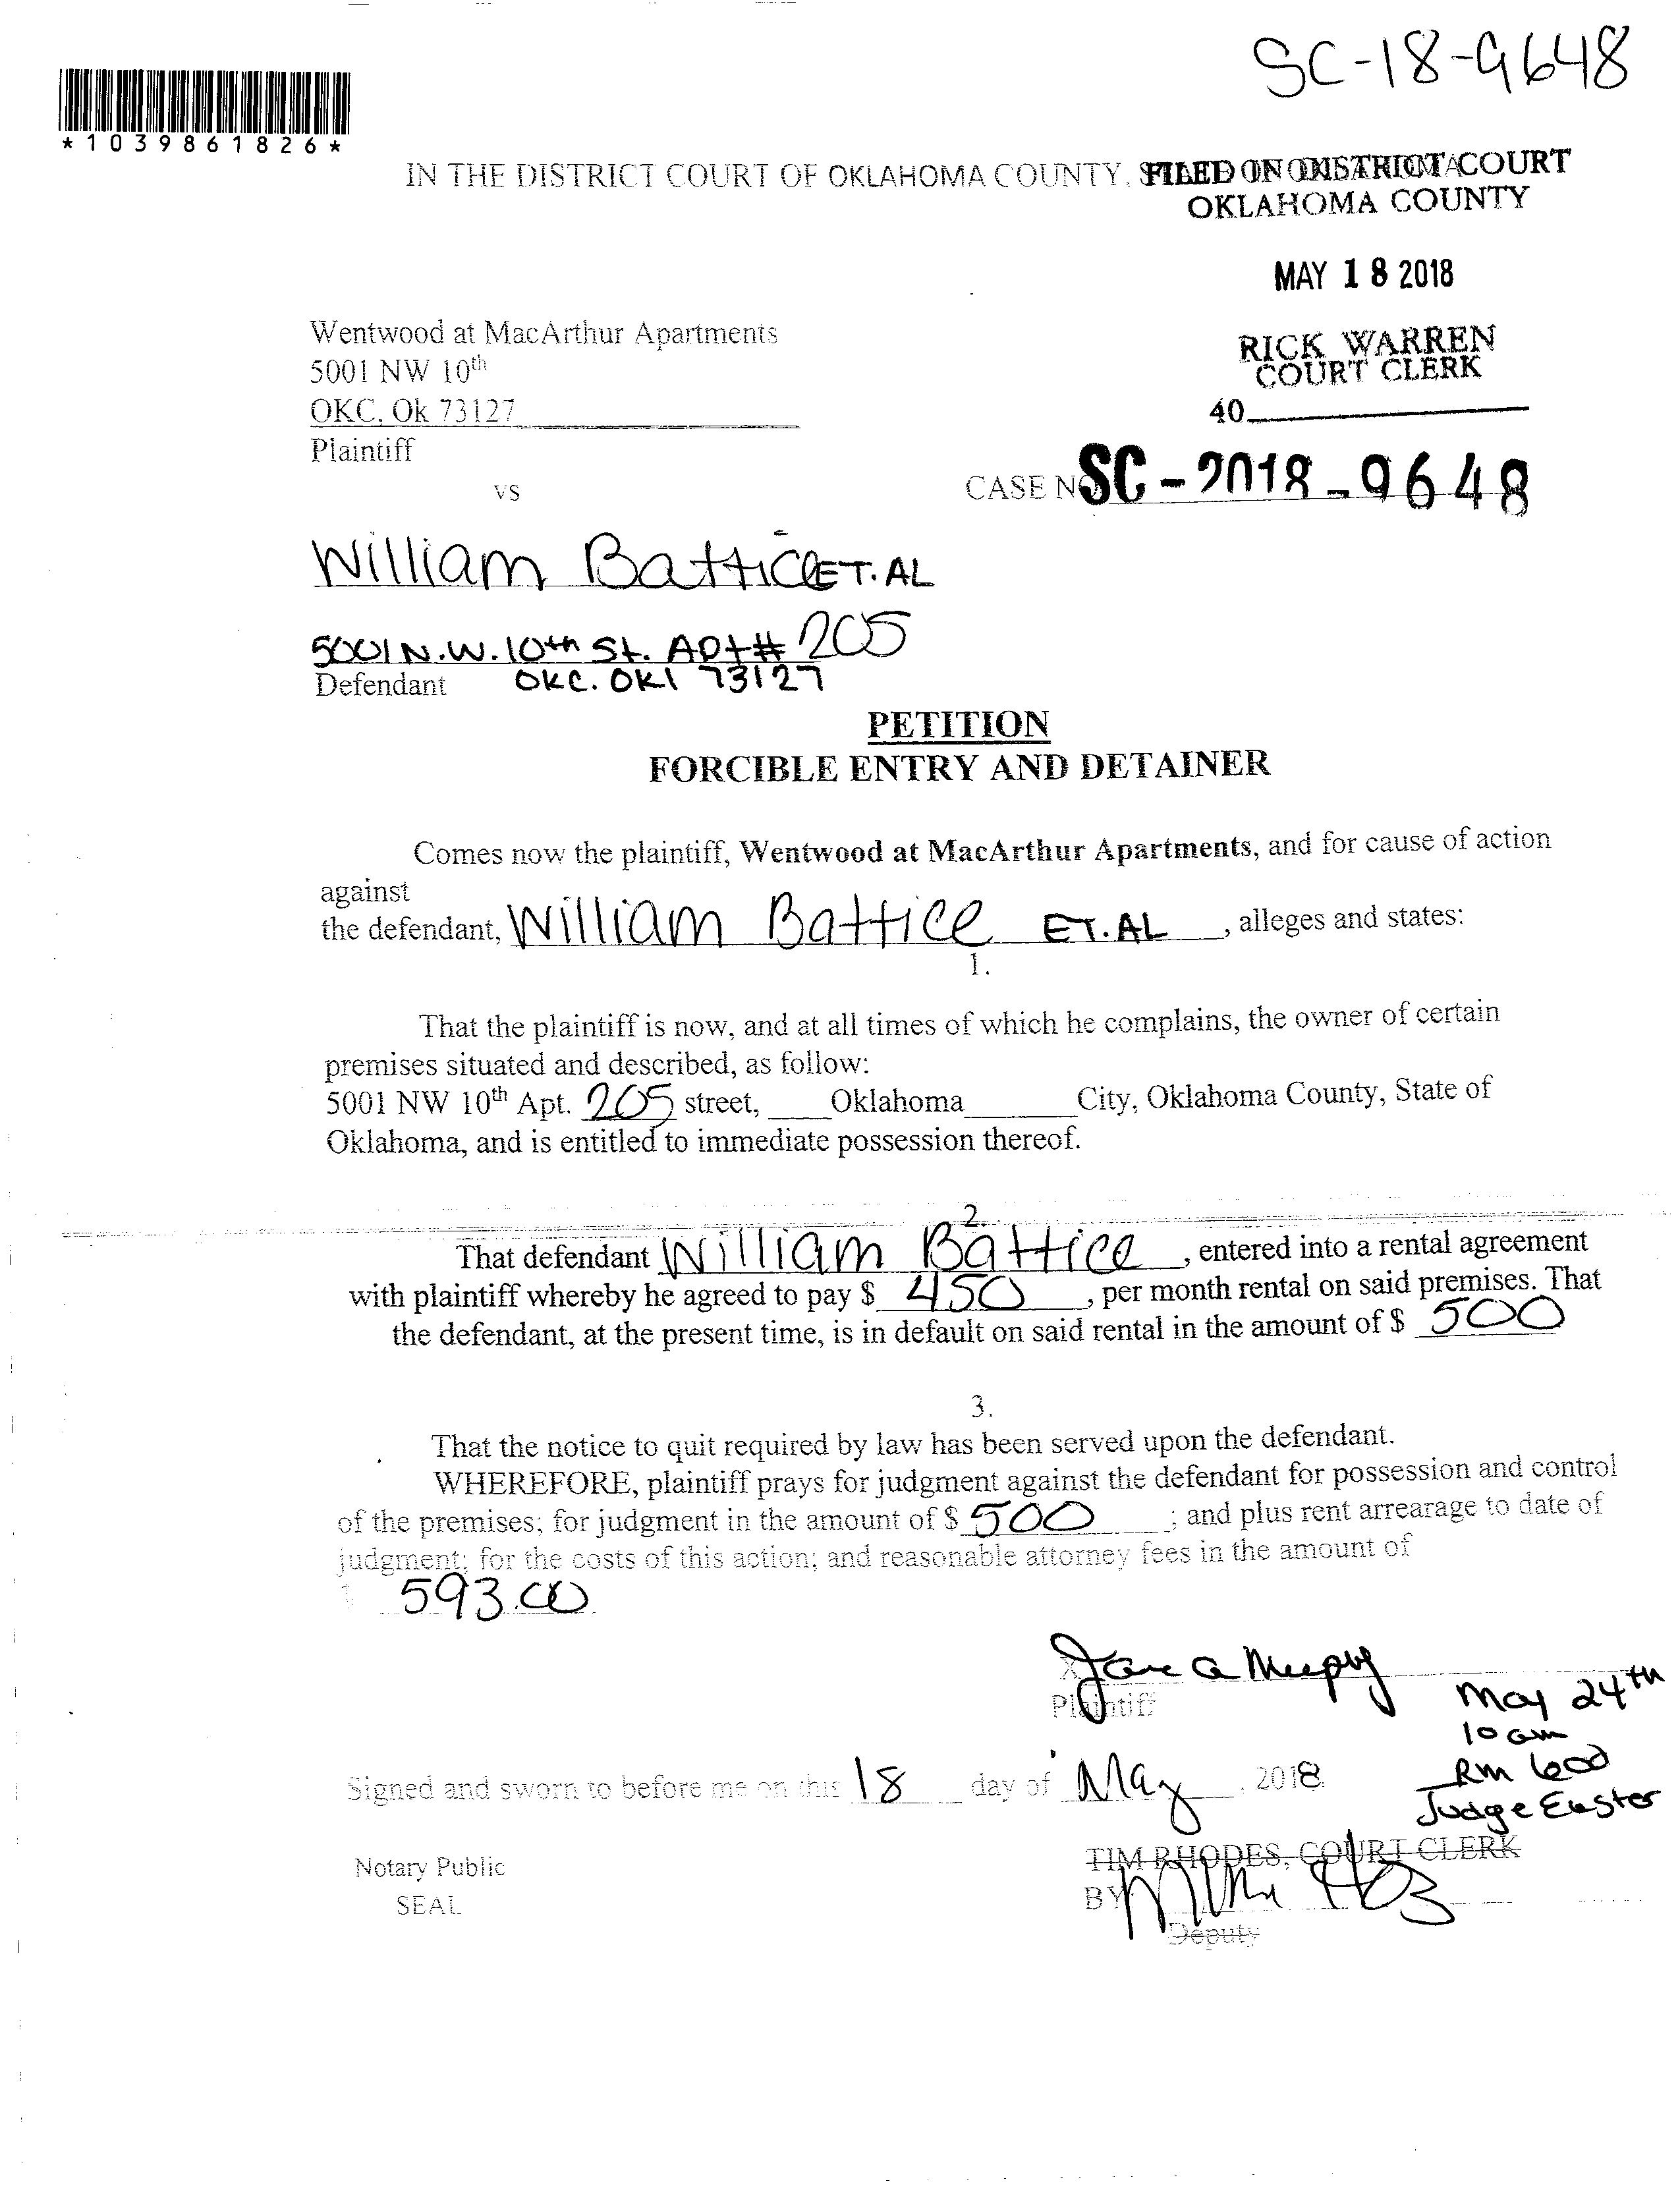 SC-18-9648
*1039861826*
IN THE DISTRICT COURT OF OKLAHOMA COUNTY,
FILED IN DISTRICT COURT
OKLAHOMA COUNTY
MAY 18 2018
Wentwood at MacArthur Apartments
5001 NW 10th
OKC, Ok 73127
Plaintiff
RICK WARREN
COURT CLERK
40
vs
CASE NO SC-2018-9648
William Battice ET.AL
5001 N.W. 10th St. Apt# 205
Defendant OKC. OKl 73127
PETITION
FORCIBLE ENTRY AND DETAINER
Comes now the plaintiff, Wentwood at MacArthur Apartments, and for cause of action
against
the defendant, William Battice ET.AL, alleges and states:
1.
That the plaintiff is now, and at all times of which he complains, the owner of certain
premises situated and described, as follow:
5001 NW 10th Apt. 205 street, Oklahoma City, Oklahoma County, State of
Oklahoma, and is entitled to immediate possession thereof.
2.
That defendant William Battice, entered into a rental agreement
with plaintiff whereby he agreed to pay $ 450, per month rental on said premises. That
the defendant, at the present time, is in default on said rental in the amount of $ 500
3.
That the notice to quit required by law has been served upon the defendant.
WHEREFORE, plaintiff prays for judgment against the defendant for possession and control
of the premises; for judgment in the amount of $ 500 ; and plus rent arrearage to date of
judgment; for the costs of this action; and reasonable attorney fees in the amount of
$ 593.00
Plaintiff
May 24th
10 am
Rm 600
Judge Easter
Signed and sworn to before me on this 18 day of May, 2018.
TIM RHODES, COURT CLERK
Notary Public
SEAL
BY
Deputy